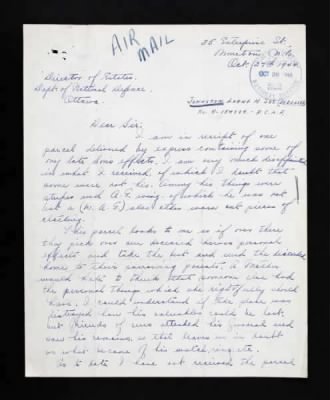 AIR
MAIL
25 Enterprise St.
Moncton, N.B.
Oct. 27th 1944
OCT 30 1944
Director of Estates,
Dept. of National Defence,
Ottawa.
JOHNSTON
R.C.A.F.
Dear Sir:
I am in receipt of one
parcel delivered by express containing some of
my late son's effects. I am very much disappointed
in what I received of which I doubt that
some were not his. Among his things were
stripes and A.G. wing, of which he was not
but a (W.A.G) also other worn out pieces of
clothing.
This parcel looks to me as if over there
they pick over our deceased heroes personal
effects and take the best and send the discarded
home to their sorrowing parents. A mother
would hate to think that someone else had
the personal things which she rightfully should
have. I could understand if the plane was
destroyed how his valuables could be lost,
but friends of ours attended his funeral and
saw his remains, so that leaves us in doubt
as what became of his watch, ring, etc.
As to date I have not received the parcel